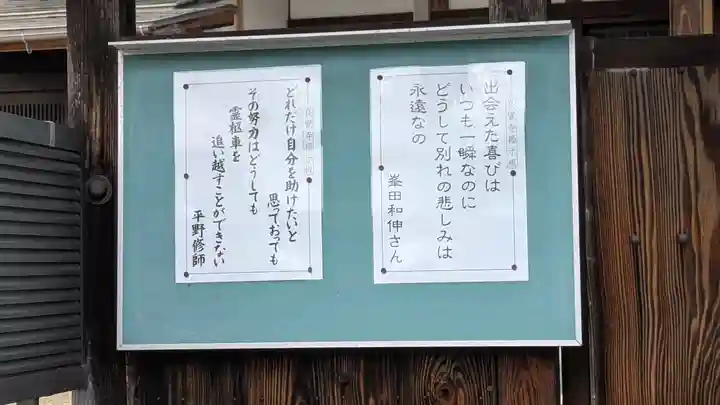 出会えた喜びは
いつも一瞬なのに
どうして別れの悲しみは
永遠なの
峯田和伸さん
どれだけ自分を助けたいと
思っておっても
その努力はどうしても
霊柩車を
追い越すことができない
平野修師